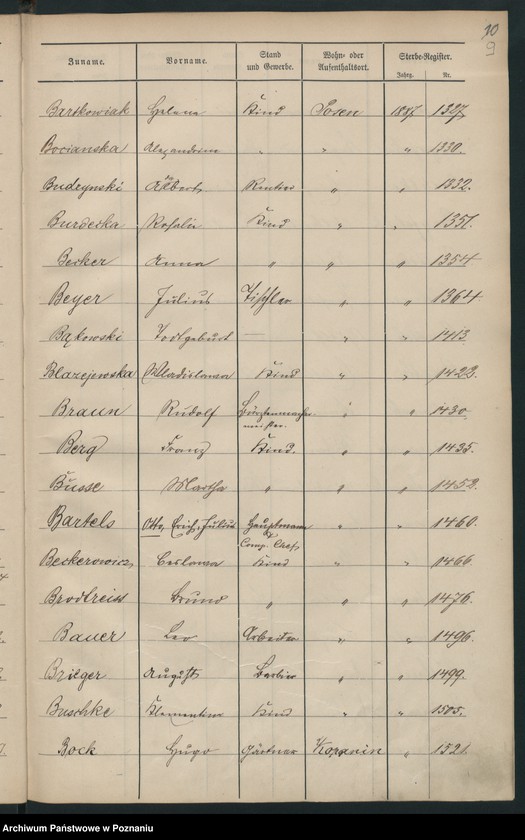 10
9
Zuname. Vorname. Stand und Gewerbe. Wohn- oder Aufenthaltsort. Sterbe-Register.
Jahrg. Nr.
Bartkowiak Helena Kind Posen 1887 1327
Bocianska Alexandrine " " " 1330.
Budzynski Albert Rentier " " 1332.
Burdecka Rosalie Kind " " 1351.
Becker Anna " " " 1354
Beyer Julius Tischler " " 1364.
Bąkowski Todtgeburt — " " 1413.
Blazejewska Wladislawa Kind " " 1422.
Braun Rudolf Bürstenmacher- " " 1430.
meister.
Berg Franz Kind. " " 1435.
Busse Martha " " " 1452.
Bartels Otto, Erich, Julius Hauptmann " " 1460.
Comp. Chef
Beckerowicz Ceslawa Kind " " 1466.
Brodtreiss Bruno " " " 1476.
Bauer Leo Arbeiter " " 1496.
Brieger August Barbier " " 1499.
Buschke Klementine Kind " " 1505.
Bock Hugo Gärtner " 1521.
Archiwum Państwowe w Poznaniu